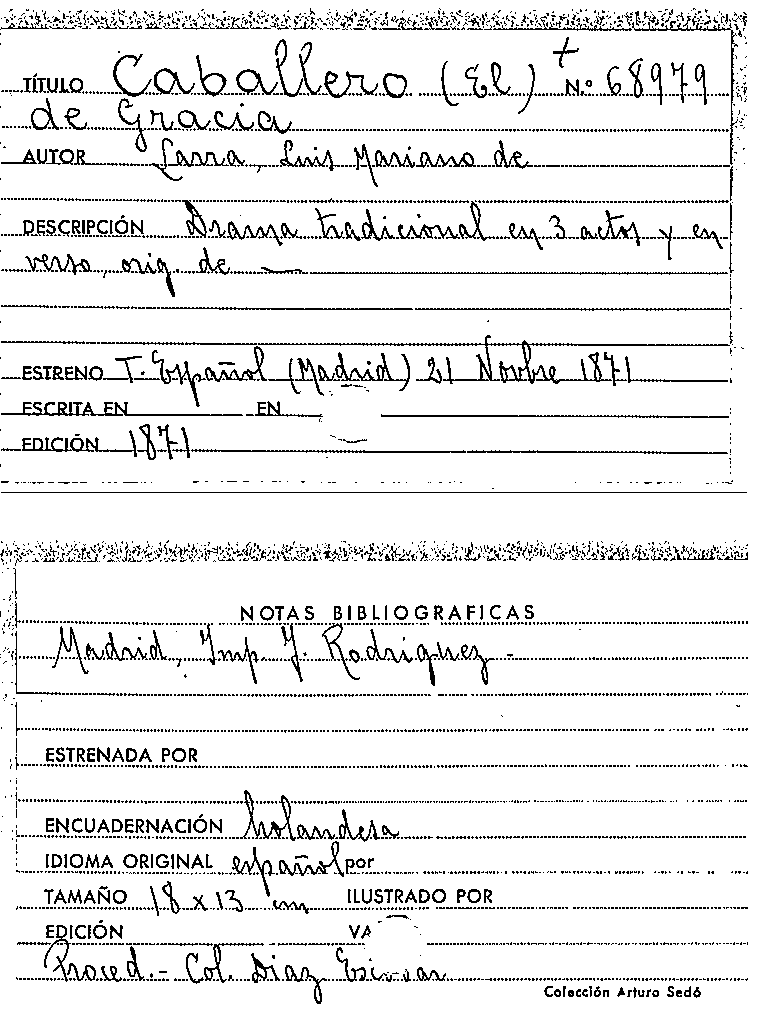 TÍTULO Caballero (El) + N.º 68979
de Gracia
AUTOR Larra, Luis Mariano de
DESCRIPCIÓN Drama tradicional en 3 actos y en
verso, orig. de —
ESTRENO T. Español (Madrid) 21 Novbre 1871
ESCRITA EN EN
EDICIÓN 1871
NOTAS BIBLIOGRAFICAS
Madrid, Imp. J. Rodriguez -
ESTRENADA POR
ENCUADERNACIÓN holandesa
IDIOMA ORIGINAL español por
TAMAÑO 18 x 13 cm ILUSTRADO POR
EDICIÓN VA
Proced.- Col. Diaz Escovar
Colección Arturo Sedó